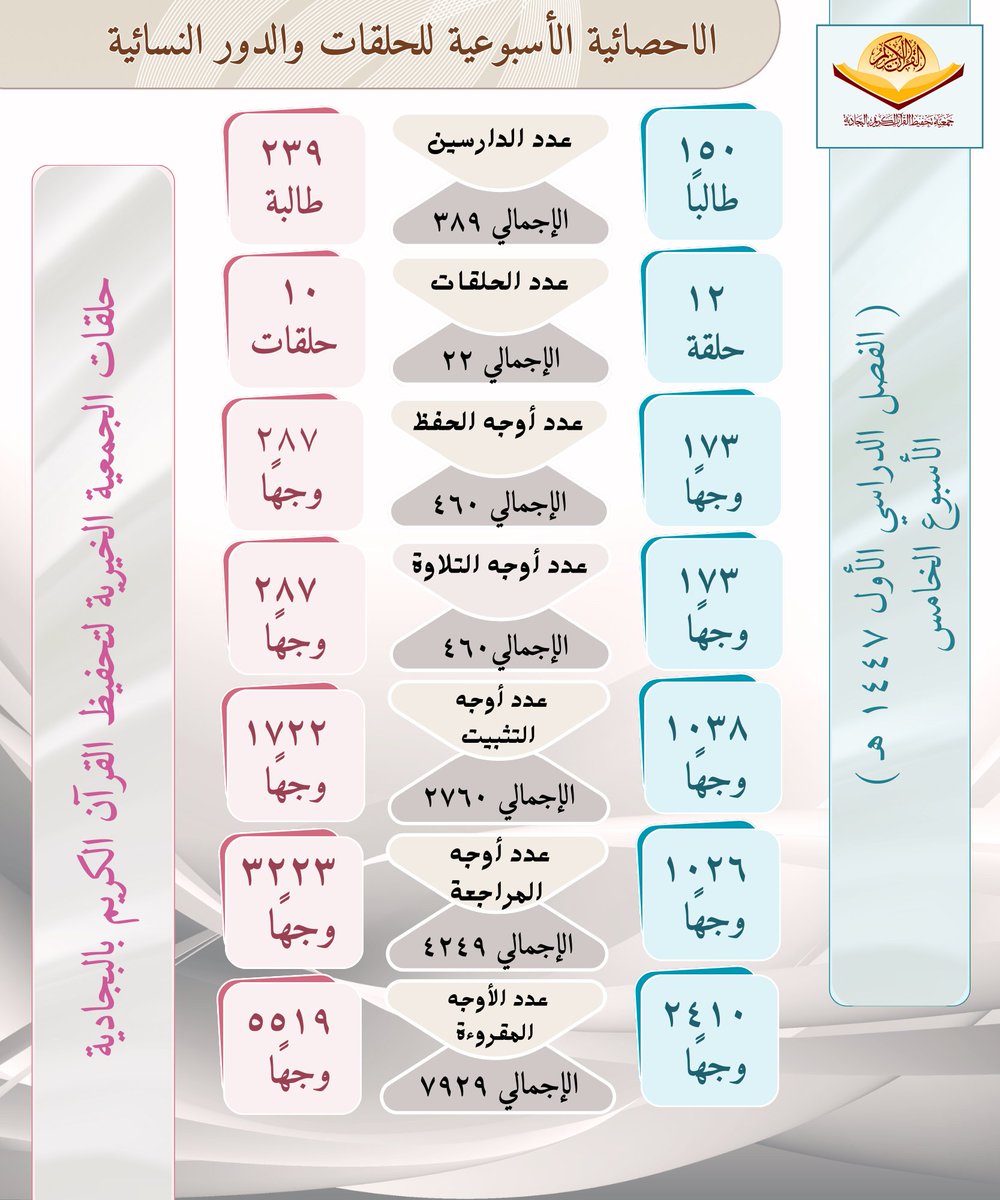 الاحصائية الأسبوعية للحلقات والدور النسائية
القرآن الكريم
جمعية تحفيظ القرآن الكريم بالبجادية
( الفصل الدراسي الأول ١٤٤٧ هـ )
الأسبوع الخامس
عدد الدارسين
١٥٠
طالبًا
٢٣٩
طالبة
الإجمالي ٣٨٩
عدد الحلقات
١٢
حلقة
١٠
حلقات
الإجمالي ٢٢
عدد أوجه الحفظ
١٧٣
وجهًا
٢٨٧
وجهًا
الإجمالي ٤٦٠
عدد أوجه التلاوة
١٧٣
وجهًا
٢٨٧
وجهًا
الإجمالي٤٦٠
عدد أوجه
التثبيت
١٠٣٨
وجهًا
١٧٢٢
وجهًا
الإجمالي ٢٧٦٠
عدد أوجه
المراجعة
١٠٢٦
وجهًا
٣٢٢٣
وجهًا
الإجمالي ٤٢٤٩
عدد الأوجه
المقروءة
٢٤١٠
وجهًا
٥٥١٩
وجهًا
الإجمالي ٧٩٢٩
حلقات الجمعية الخيرية لتحفيظ القرآن الكريم بالبجادية